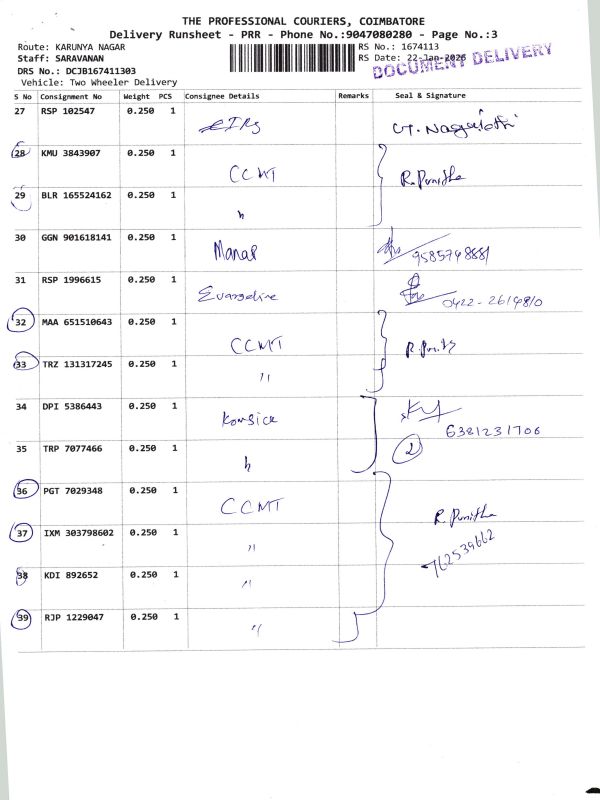 THE PROFESSIONAL COURIERS, COIMBATORE
Delivery Runsheet - PRR - Phone No.:9047080280 - Page No.:3
Route: KARUNYA NAGAR
RS No.: 1674113
Staff: SARAVANAN
RS Date: 22-Jan-2026
DOCUMENT DELIVERY
DRS No.: DCJB167411303
Vehicle: Two Wheeler Delivery
S No Consignment No Weight PCS Consignee Details Remarks Seal & Signature
27 RSP 102547 0.250 1
28 KMU 3843907 0.250 1 CCMT R. Punitha
29 BLR 165524162 0.250 1 "
30 GGN 901618141 0.250 1 9585748881
31 RSP 1996615 0.250 1 Evangeline 0422-2614810
32 MAA 651510643 0.250 1 CCMT
33 TRZ 131317245 0.250 1 "
34 DPI 5386443 0.250 1 6381231706
35 TRP 7077466 0.250 1 " 2
36 PGT 7029348 0.250 1 CCMT R. Punitha
37 IXM 303798602 0.250 1 " 762539662
38 KDI 892652 0.250 1 "
39 RJP 1229047 0.250 1 "